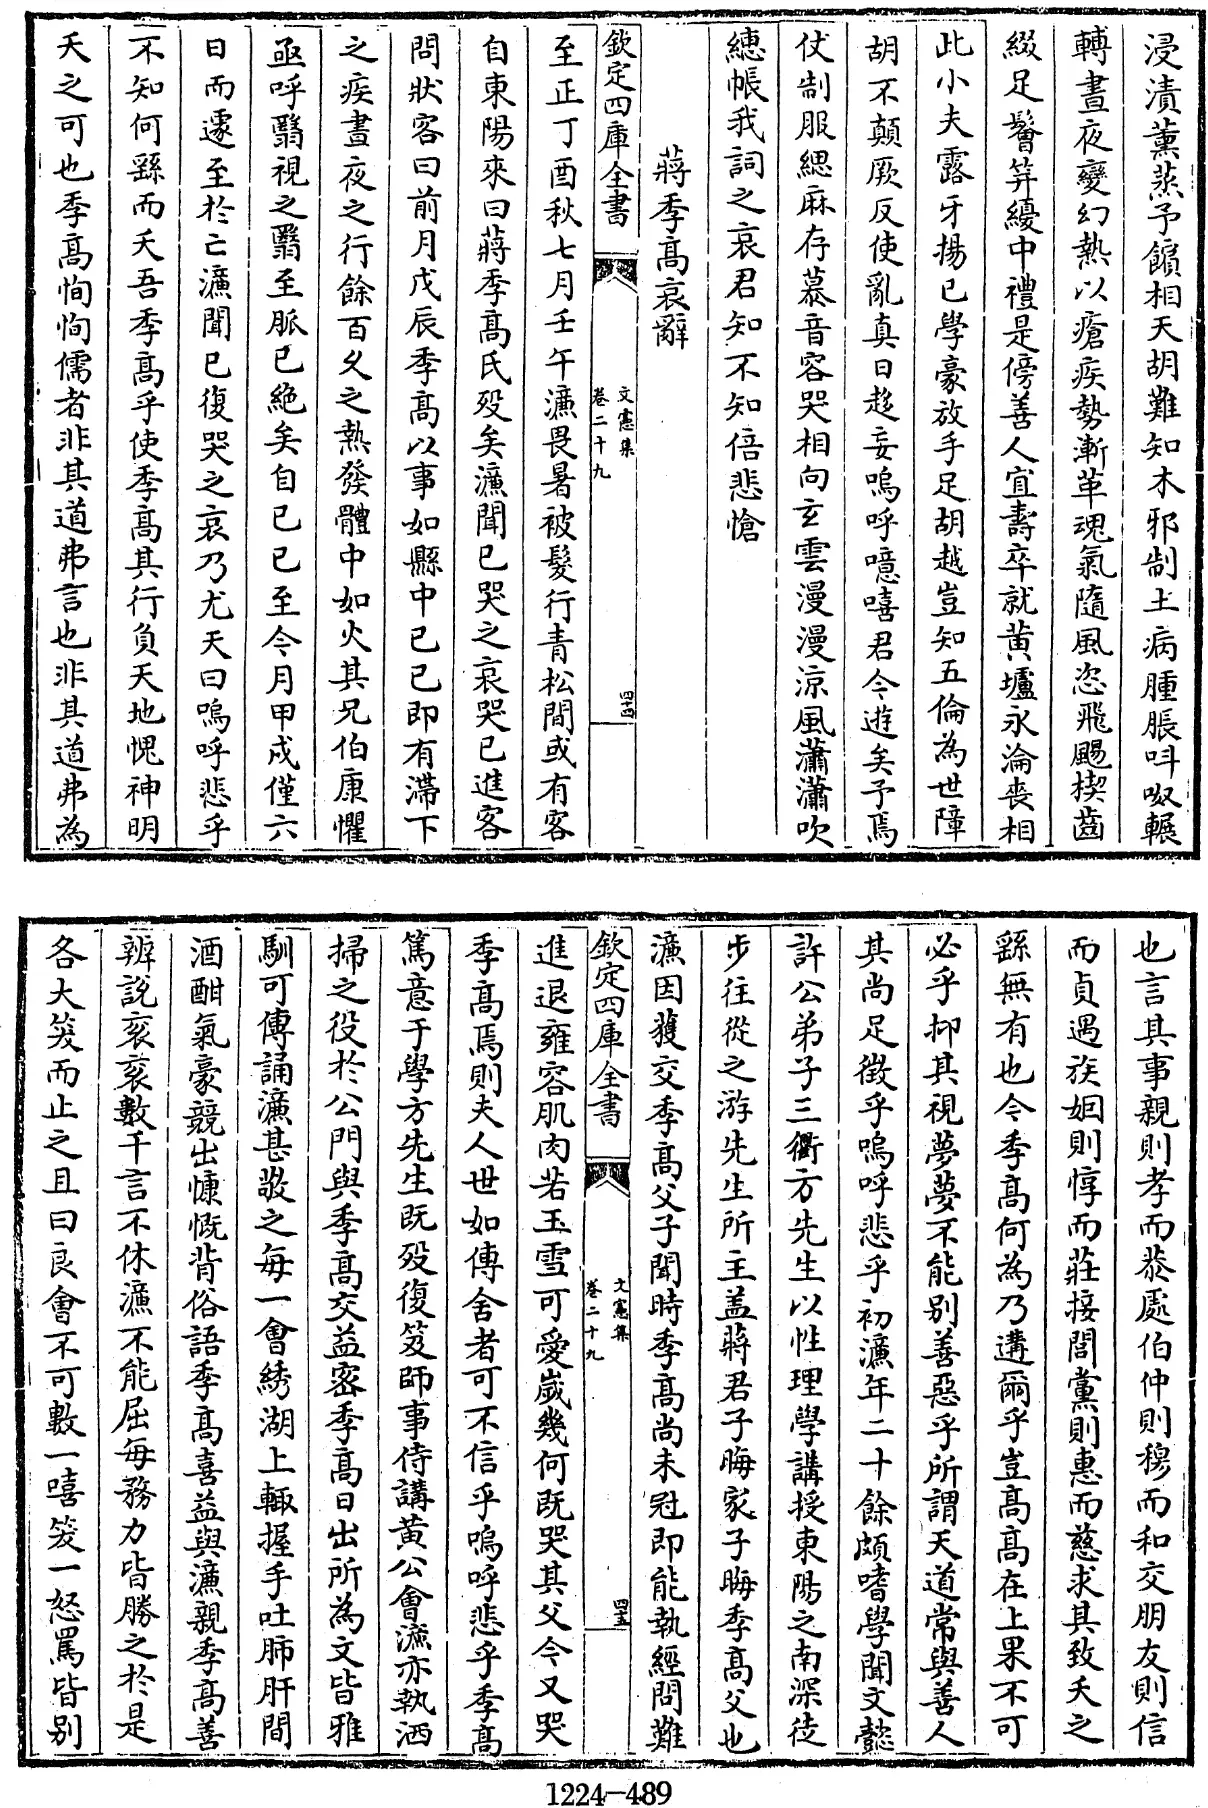 浸漬薰蒸予饙相天胡難知木邪制土病腫脹呌呶輾
轉晝夜變幻熱以瘡疾勢漸革魂氣隨風恣飛颺楔齒
綴足鬠笄纋中禮是傍善人宜壽卒就黄壚永淪喪相
此小夫露牙揚已學豪放手足胡越豈知五倫為世障
胡不顛厥反使亂真日趍妄嗚呼噫嘻君今逰矣予焉
仗制服緦麻存慕音容哭相向玄雲漫漫凉風瀟瀟吹
繐帳我詞之哀君知不知倍悲愴
蔣季髙哀辭
欽定四庫全書
文憲集
卷二十九
四十四
至正丁酉秋七月壬午濂畏暑被髮行青松間或有客
自東陽來曰蔣季髙氏殁矣濂聞已哭之哀哭已進客
問狀客曰前月戊辰季髙以事如縣中已已即有滯下
之疾晝夜之行餘百乆之熱發體中如火其兄伯康懼
亟呼毉視之毉至脈已絶矣自已已至今月甲戌僅六
日而遽至於亡濂聞已復哭之哀乃尤天曰嗚呼悲乎
不知何繇而夭吾季髙乎使季髙其行負天地愧神明
夭之可也季髙恂恂儒者非其道弗言也非其道弗為
也言其事親則孝而恭處伯仲則穆而和交朋友則信
而貞遇族姻則惇而莊接閭黨則惠而慈求其致夭之
繇無有也今季髙何為乃遘爾乎豈髙髙在上果不可
必乎抑其視夢夢不能别善惡乎所謂天道常與善人
其尚足徴乎嗚呼悲乎初濂年二十餘頗嗜學聞文懿
許公弟子三衢方先生以性理學講授東陽之南深徒
步往從之游先生所主盖蔣君子晦家子晦季髙父也
濂因獲交季髙父子聞時季髙尚未冠即能執經問難
欽定四庫全書
文憲集
卷二十九
四十五
進退雍容肌肉若玉雪可愛嵗幾何既哭其父今又哭
季髙焉則夫人世如傳舍者可不信乎嗚呼悲乎季髙
篤意于學方先生既殁復笈師事侍講黄公會濂亦執洒
掃之役於公門與季髙交益密季髙日出所為文皆雅
馴可傳誦濂甚敬之每一會綉湖上輙握手吐肺肝間
酒酣氣豪競出慷慨背俗語季髙喜益與濂親季髙善
辨説衮衮數千言不休濂不能屈每務力皆勝之於是
各大笑而止之且曰良會不可數一嘻笑一怒罵皆别
1224-489